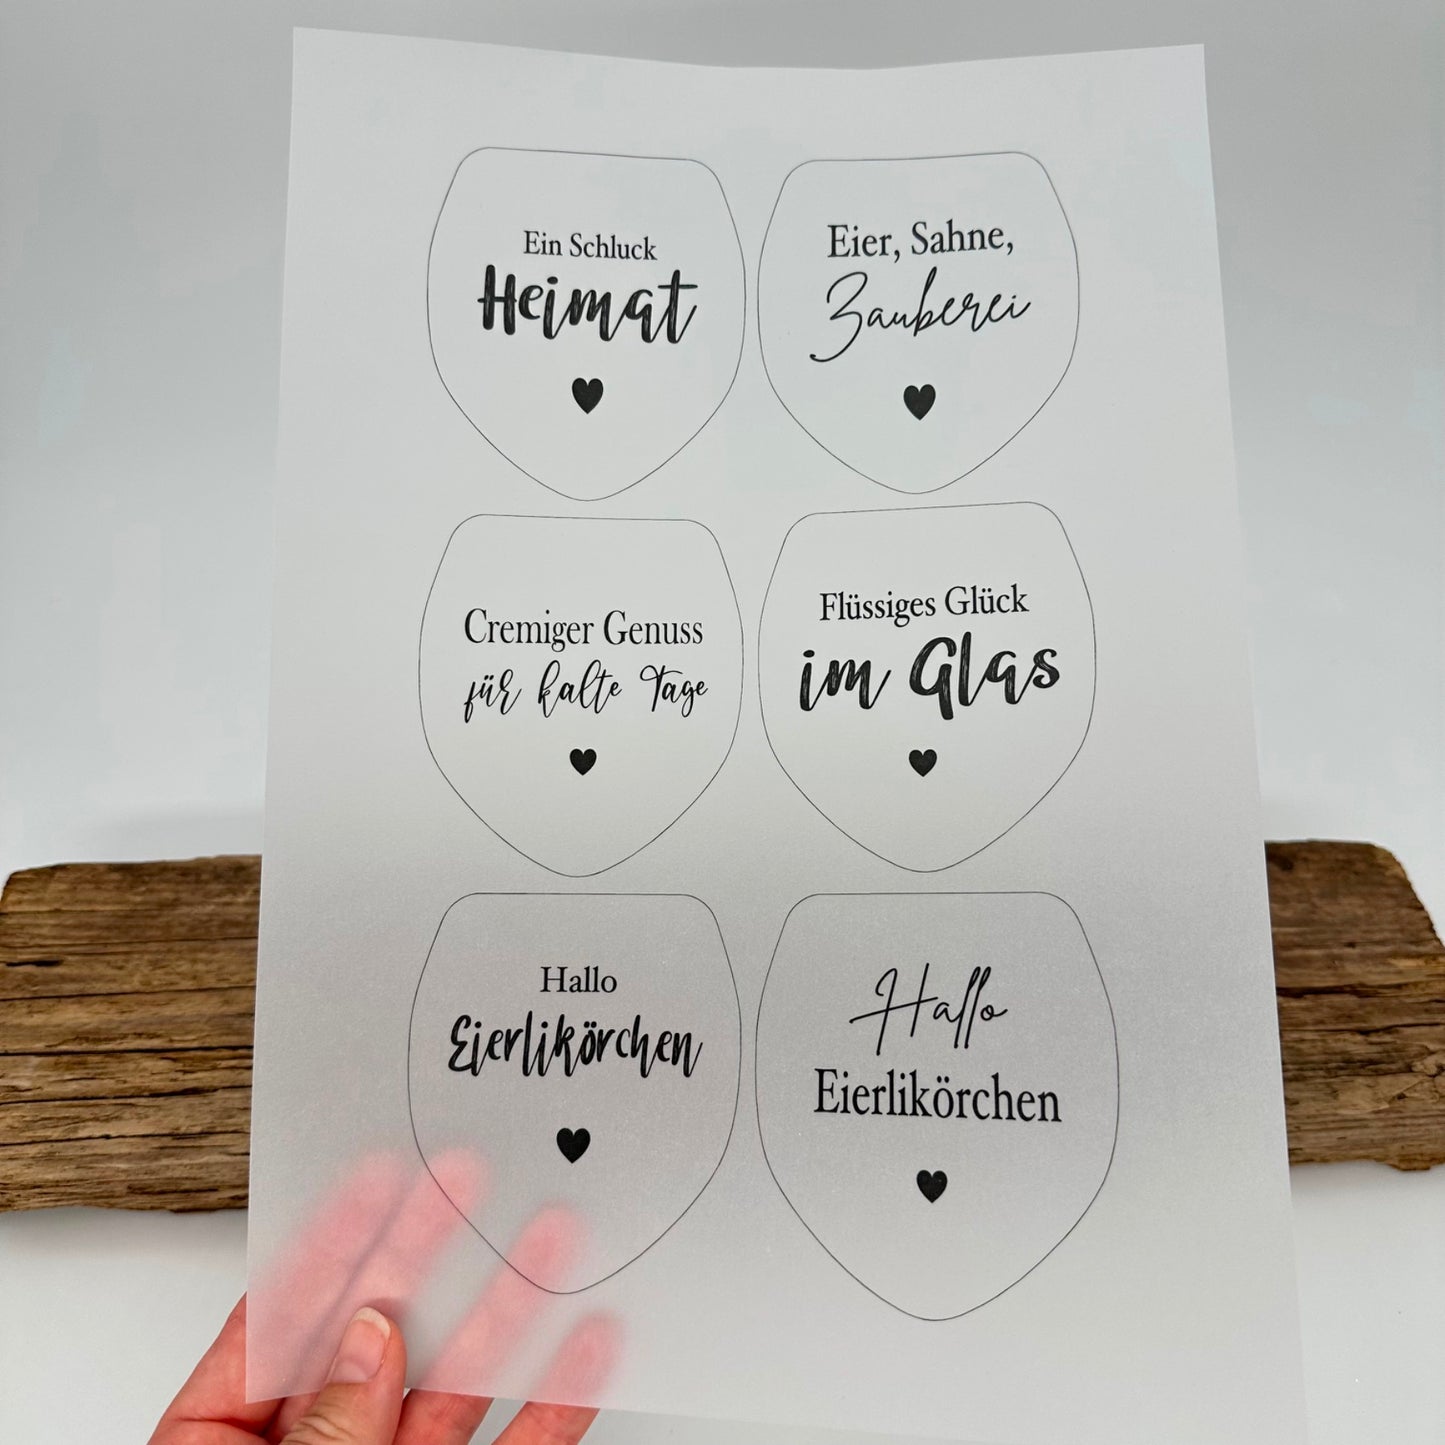 Ein Schluck
Heimat
Eier, Sahne,
Zauberei
Cremiger Genuss
für kalte Tage
Flüssiges Glück
im Glas
Hallo
Eierlikörchen
Hallo
Eierlikörchen